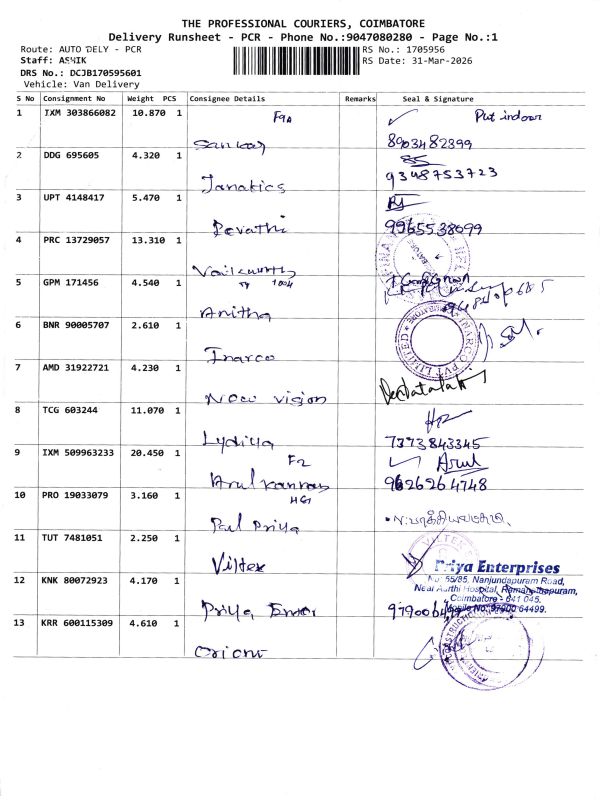 THE PROFESSIONAL COURIERS, COIMBATORE
Delivery Runsheet - PCR - Phone No.:9047080280 - Page No.:1
Route: AUTO DELY - PCR
RS No.: 1705956
Staff: ASHIK
RS Date: 31-Mar-2026
DRS No.: DCJB170595601
Vehicle: Van Delivery
S No Consignment No Weight PCS Consignee Details Remarks Seal & Signature
1 IXM 303866082 10.870 1 F9A Put indoor
Sankar 8903482899
2 DDG 695605 4.320 1
Janatics 9348753723
3 UPT 4148417 5.470 1
Revathi 9965538099
4 PRC 13729057 13.310 1
5 GPM 171456 4.540 1
Anitha
6 BNR 90005707 2.610 1
Inarco INARCO PVT LIMITED
7 AMD 31922721 4.230 1
New vision Venkatalak
8 TCG 603244 11.070 1
Lydiya 7373843345
9 IXM 509963233 20.450 1 F2 Arul
Arul kannan 9626264748
10 PRO 19033079 3.160 1 HG1
Paul Priya
11 TUT 7481051 2.250 1
Viltex VILTEX
Priya Enterprises
12 KNK 80072923 4.170 1 No: 55/85, Nanjundapuram Road,
Near Aarthi Hospital, Ramanathapuram,
Coimbatore - 641 045.
Priya Enter Mobile No: 97900 64499.
13 KRR 600115309 4.610 1
Orient